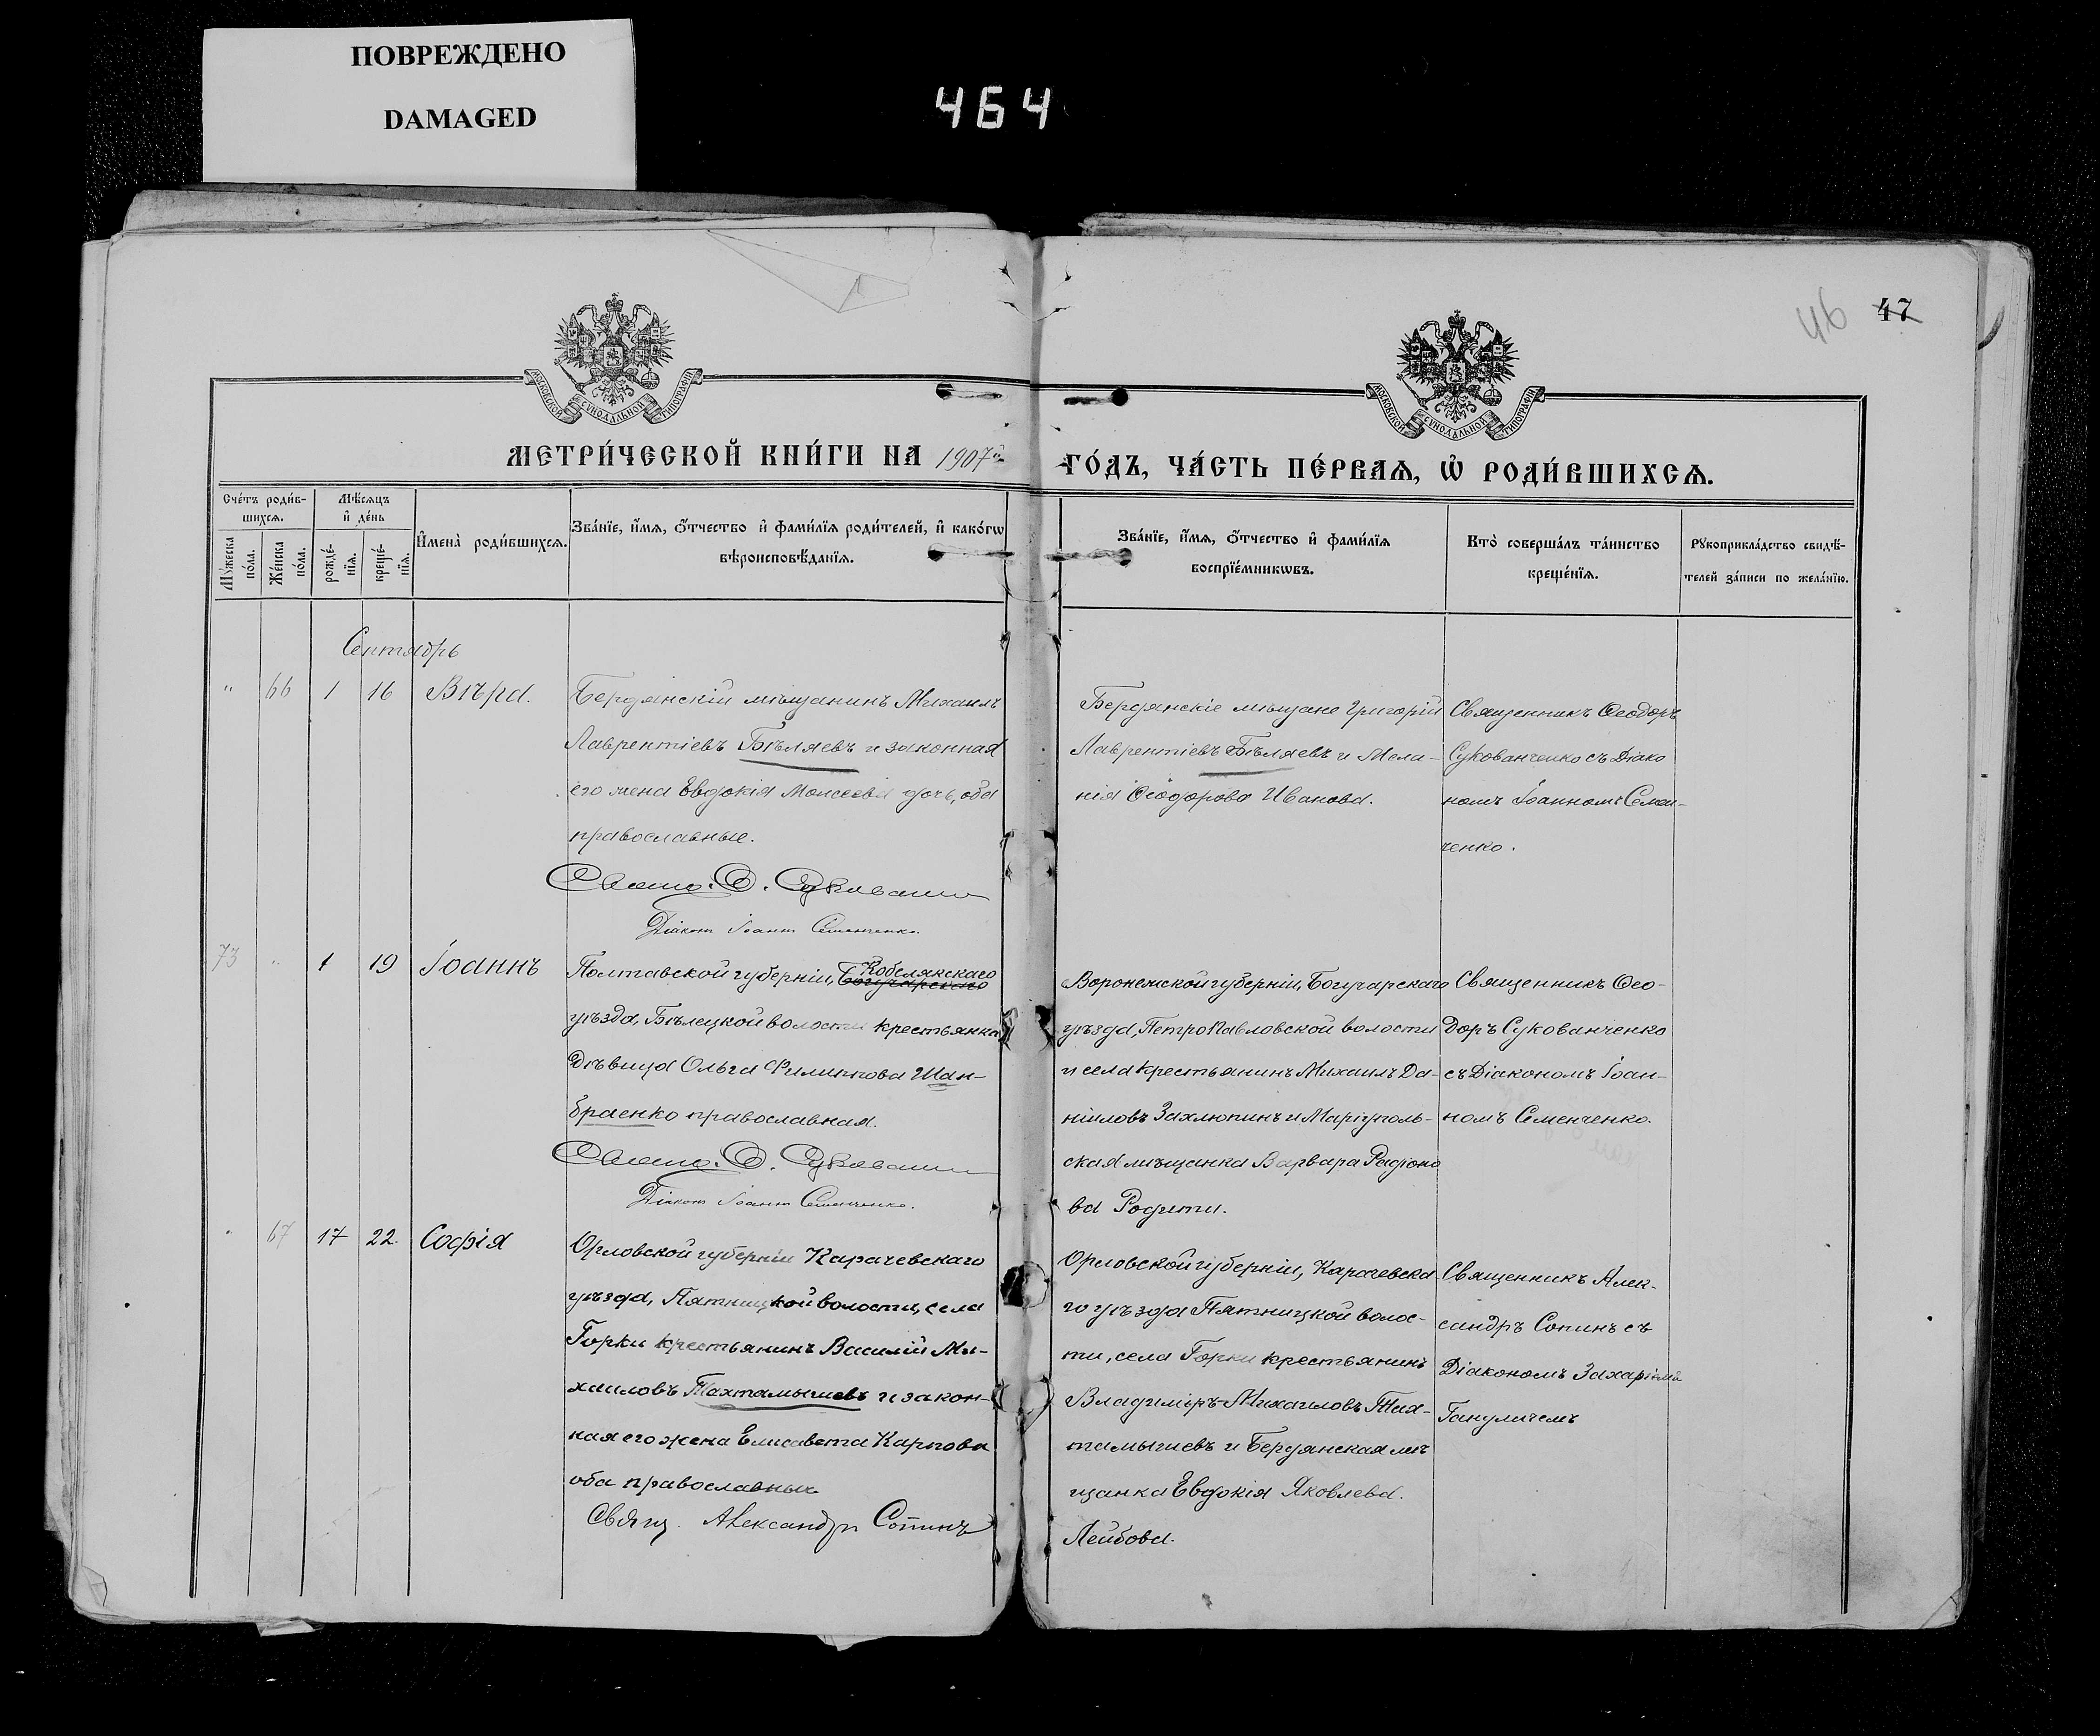 ПОВРЕЖДЕНО
DAMAGED
464
46 47
МОСКОВСКОЙ СѴНОДАЛЬНОЙ ТИПОГРАФІИ
МОСКОВСКОЙ СѴНОДАЛЬНОЙ ТИПОГРАФІИ
МЕТРИ́ЧЕСКОЙ КНИ́ГИ НА 1907й
ГО́ДЪ, ЧА́СТЬ ПЕ́РВАѦ, Ѡ҆ РОДИ́ВШИХСѦ.
Сче́тъ роди́в-
шихсѧ.
Мꙋ́жеска по́ла.
Же́нска по́ла.
Мѣ́сѧцъ
и҆ де́нь
рожде́-
нїѧ.
креще́-
нїѧ.
И҆мена̀ роди́вшихсѧ.
Зва́нїе, и҆́мѧ, ѻ҆́тчество и҆ фами́лїѧ роди́телей, и҆ како́гѡ
вѣроисповѣ́данїѧ.
Зва́нїе, и҆́мѧ, ѻ҆́тчество и҆ фами́лїѧ
воспрїе́мникѡвъ.
Кто̀ соверша́лъ та́инство
креще́нїѧ.
Рꙋкоприкла́дство свидѣ́-
телей за́писи по жела́нїю.
Сентябрь
" 66 1 16 Вѣра.
Бердянскій мѣщанинъ Михаилъ
Лаврентіевъ Бѣляевъ и законная
его жена Евдокія Моисеева дочь, оба
православные.
Свящ. Ѳ. Сукован
Діаконъ Іоаннъ Семенченко.
Бердянскіе мѣщане Григорій
Лаврентіевъ Бѣляевъ и Мела-
нія Ѳеодорова Иванова.
Священникъ Ѳеодоръ
Сукованченко съ Діако
номъ Іоанномъ Семен-
ченко.
73 " 1 19 Іоаннъ
Кобелякскаго
Полтавской губерніи, Богучарскаго
уѣзда, Бѣлецкой волости крестьянка
дѣвица Ольга Филиппова Шан-
браенко православная.
Свящ. Ѳ. Сукован
Діаконъ Іоаннъ Семенченко.
Воронежской губерніи, Богучарскаго
уѣзда, Петропавловской волости
и села крестьянинъ Михаилъ Да-
ніиловъ Захлюпинъ и Маріуполь-
ская мѣщанка Варвара Радіоно
ва Родити.
Священникъ Ѳео-
доръ Сукованченко
съ Діакономъ Іоан-
номъ Семенченко.
" 67 17 22. Софія
Орловской губерніи Карачевскаго
уѣзда, Пятницкой волости, села
Горки крестьянинъ Василій Ми-
хаиловъ Тахтамышевъ и закон-
ная его жена Елисавета Карпова
оба православные
Свящ. Александръ Сопинъ
Орловской губерніи, Карачевска
го уѣзда Пятницкой волос-
ти, села Горки крестьянинъ
Владиміръ Михаиловъ Тах-
тамышевъ и Бердянская мѣ
щанка Евдокія Яковлева.
Лейбова.
Священникъ Алек-
сандръ Сопинъ съ
Діакономъ Захаріемъ
Гануличемъ